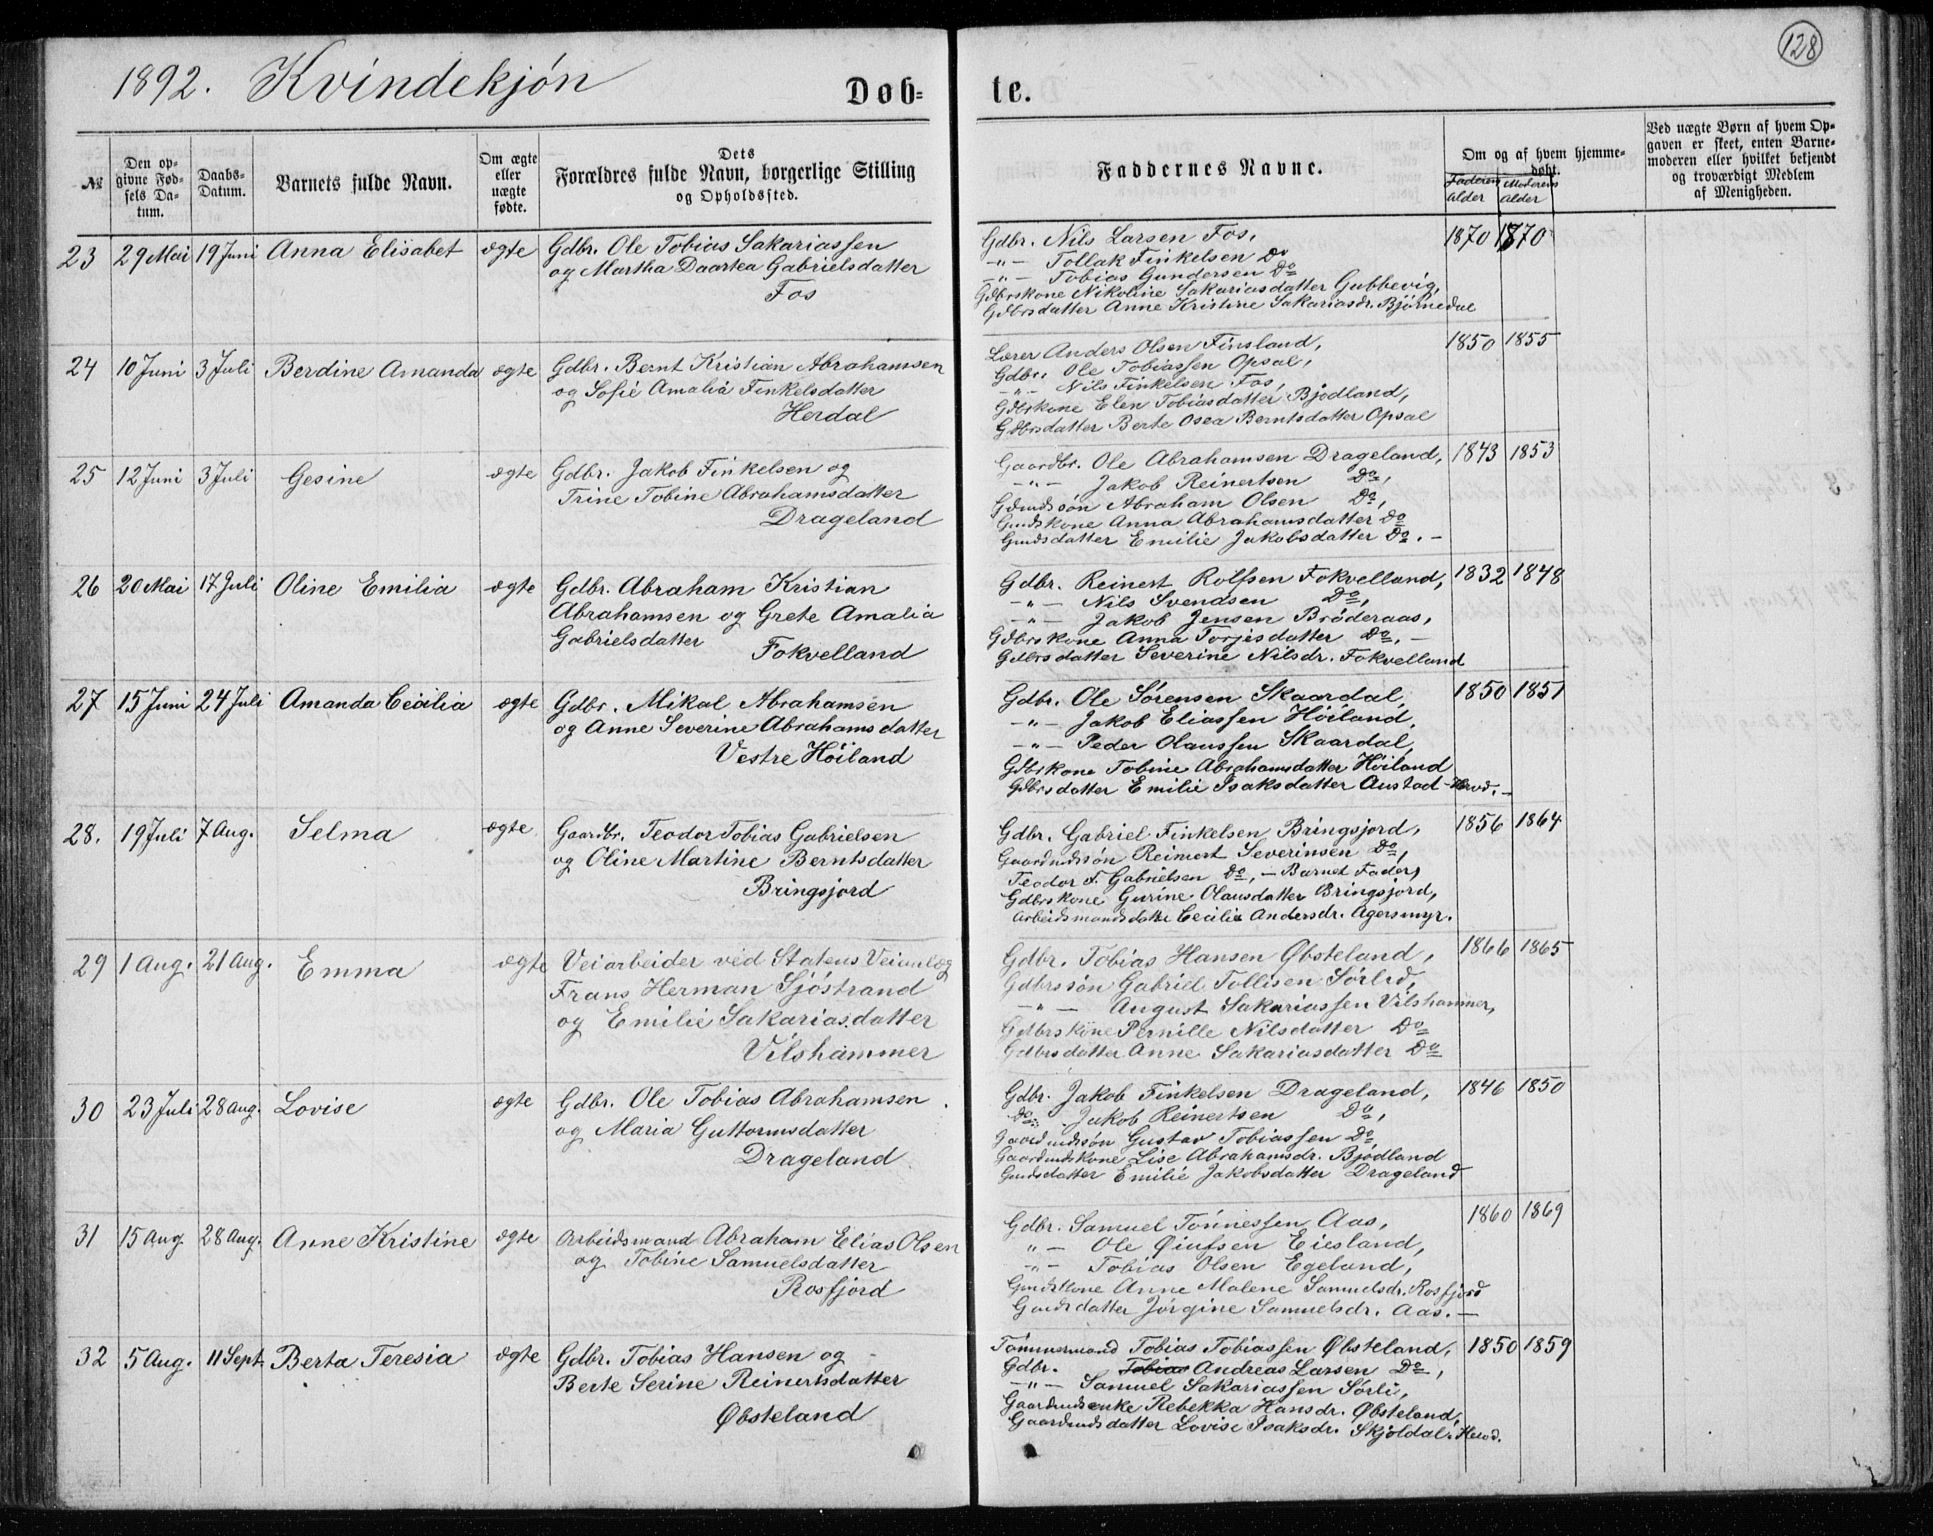 128
1892. Kvindekjön
Døb=
te.
№
Den op-
givne Fød-
sels Da-
tum.
Daabs-
Datum.
Barnets fulde Navn.
Om ægte
eller
uægte
fødte.
Dets
Forældres fulde Navn, borgerlige Stilling
og Opholdssted.
Faddernes Navne.
Om og af hvem hjemme-
døbt.
Faderens Alder
Moderens Alder
Ved uægte Børn af hvem Op-
gaven er skeet, enten Barne-
moderen eller hvilket bekjendt
og troværdigt Medlem
af Menigheden.
23 29 Mai 19 Juni Anna Elisabet ægte Gdbr. Ole Tobias Sakariassen
og Martha Daartea Gabrielsdatter
Fos
Gdbr. Nils Larsen Fos, 1870 1870
-"- Tollak Finkelsen Do
-"- Tobias Gundersen Do
Gdbrskone Nikoline Sakariasdatter Gubbevig,
Gdbrsdatter Anne Kristine Sakariasdr. Bjørnedal
24 10 Juni 3 Juli Berdine Amanda ægte Gdbr. Bernt Kristian Abrahamsen
og Sofie Amalia Finkelsdatter
Herdal
Lærer Anders Olsen Finsland, 1850 1855
Gdbr. Ole Tobiassen Opsal,
-"- Nils Finkelsen Fos,
Gdbrkone Elen Tobiasdatter Bjodland,
Gdbrsdatter Berte Osea Berntsdatter Opsal
25 12 Juni 3 Juli Gesine ægte Gdbr. Jakob Finkelsen og
Trine Tobine Abrahamsdatter
Drageland
Gaardbr. Ole Abrahamsen Drageland, 1843 1853
-"- Jakob Reinertsen Do,
Gdmdssön Abraham Olsen Do,
Gmdskone Anna Abrahamsdatter Do
Gmdsdatter Emilie Jakobsdatter Do. -
26 20 Mai 17 Juli Oline Emilia ægte Gdbr. Abraham Kristian
Abrahamsen og Grete Amalia
Gabrielsdatter Fokvelland
Gdbr. Reinert Rolfsen Fokvelland, 1832 1848
-"- Nils Svendsen Do,
-"- Jakob Jensen Bröderaas,
Gdbrskone Anna Torjesdatter Do. -
Gdbrsdatter Severine Nilsdr. Fokvelland
27 15 Juni 24 Juli Amanda Cecilia ægte Gdbr. Mikal Abrahamsen
og Anne Severine Abrahamsdatter
Vestre Höiland
Gdbr. Ole Sörensen Skaardal, 1850 1851
-"- Jakob Eliassen Höiland,
-"- Peder Olaussen Skaardal,
Gdbrskone Tobine Abrahamsdatter Höiland
Gdbrsdatter Emilie Isaksdatter Austad - Herod. -
28. 19 Juli 7 Aug. Selma ægte. Gaardbr. Teodor Tobias Gabrielsen
og Oline Martine Berntsdatter
Bringsjord
Gdbr. Gabriel Finkelsen Bringsjord, 1856 1864
Gaardmdssön Reinert Severinsen Do,
Teodor T. Gabrielsen Do, - Barnet Fader,
Gdbrskone Gurine Olausdatter Bringsjord,
Arbeidsmandsdatter Cecilie Andersdr. Agersmyr.
29 1 Aug. 21 Aug. Emma ægte Veiarbeider ved Statens Veianlæg
Frans Herman Sjöstrand
og Emilie Sakariasdatter
Vilshammer
Gdbr. Tobias Hansen Øbsteland, 1866 1865
Gdbrssön Gabriel Tollisen Sörlid,
-"- August Sakariassen Vilshammer,
Gdbrskone Pernille Nilsdatter Do
Gdbrsdatter Anne Sakariasdatter Do
30 23 Juli 28 Aug. Lovise ægte Gdbr. Ole Tobias Abrahamsen
og Maria Guttormsdatter
Drageland
Gdbr. Jakob Finkelsen Drageland, 1846 1850
Do. Jakob Reinertsen Do,
Gaardmdssön Gustav Tobiassen Do,
Gaardmdskone Lise Abrahamsdr. Bjodland
Gmdsdatter Emilie Jakobsdatter Drageland
31 15 Aug 28 Aug. Anne Kristine ægte Arbeidsmand Abraham Elias Olsen
og Tobine Samuelsdatter
Rosfjord
Gdbr. Samuel Tönnessen Aas, 1860 1869
"- Ole Øiufsen Eiesland,
-"- Tobias Olsen Egeland,
Gmdskone Anne Malene Samuelsdr. Rosfjord
Gmdsdatter Jörgine Samuelsdr. Aas. -
32 5 Aug. 11 Sept. Berta Teresia ægte Gdbr. Tobias Hansen og
Berte Serine Reinertsdatter
Øbsteland
Tömmermand Tobias Tobiassen Øbsteland, 1850 1859
Gdbr. Tobias Andreas Larsen Do,
-"- Samuel Sakariassen Sörli,
Gaardmdsenke Rebekka Hansdr. Øbsteland,
Gaardmdsdatter Lovise Isaksdr. Skjoldal. Herod.